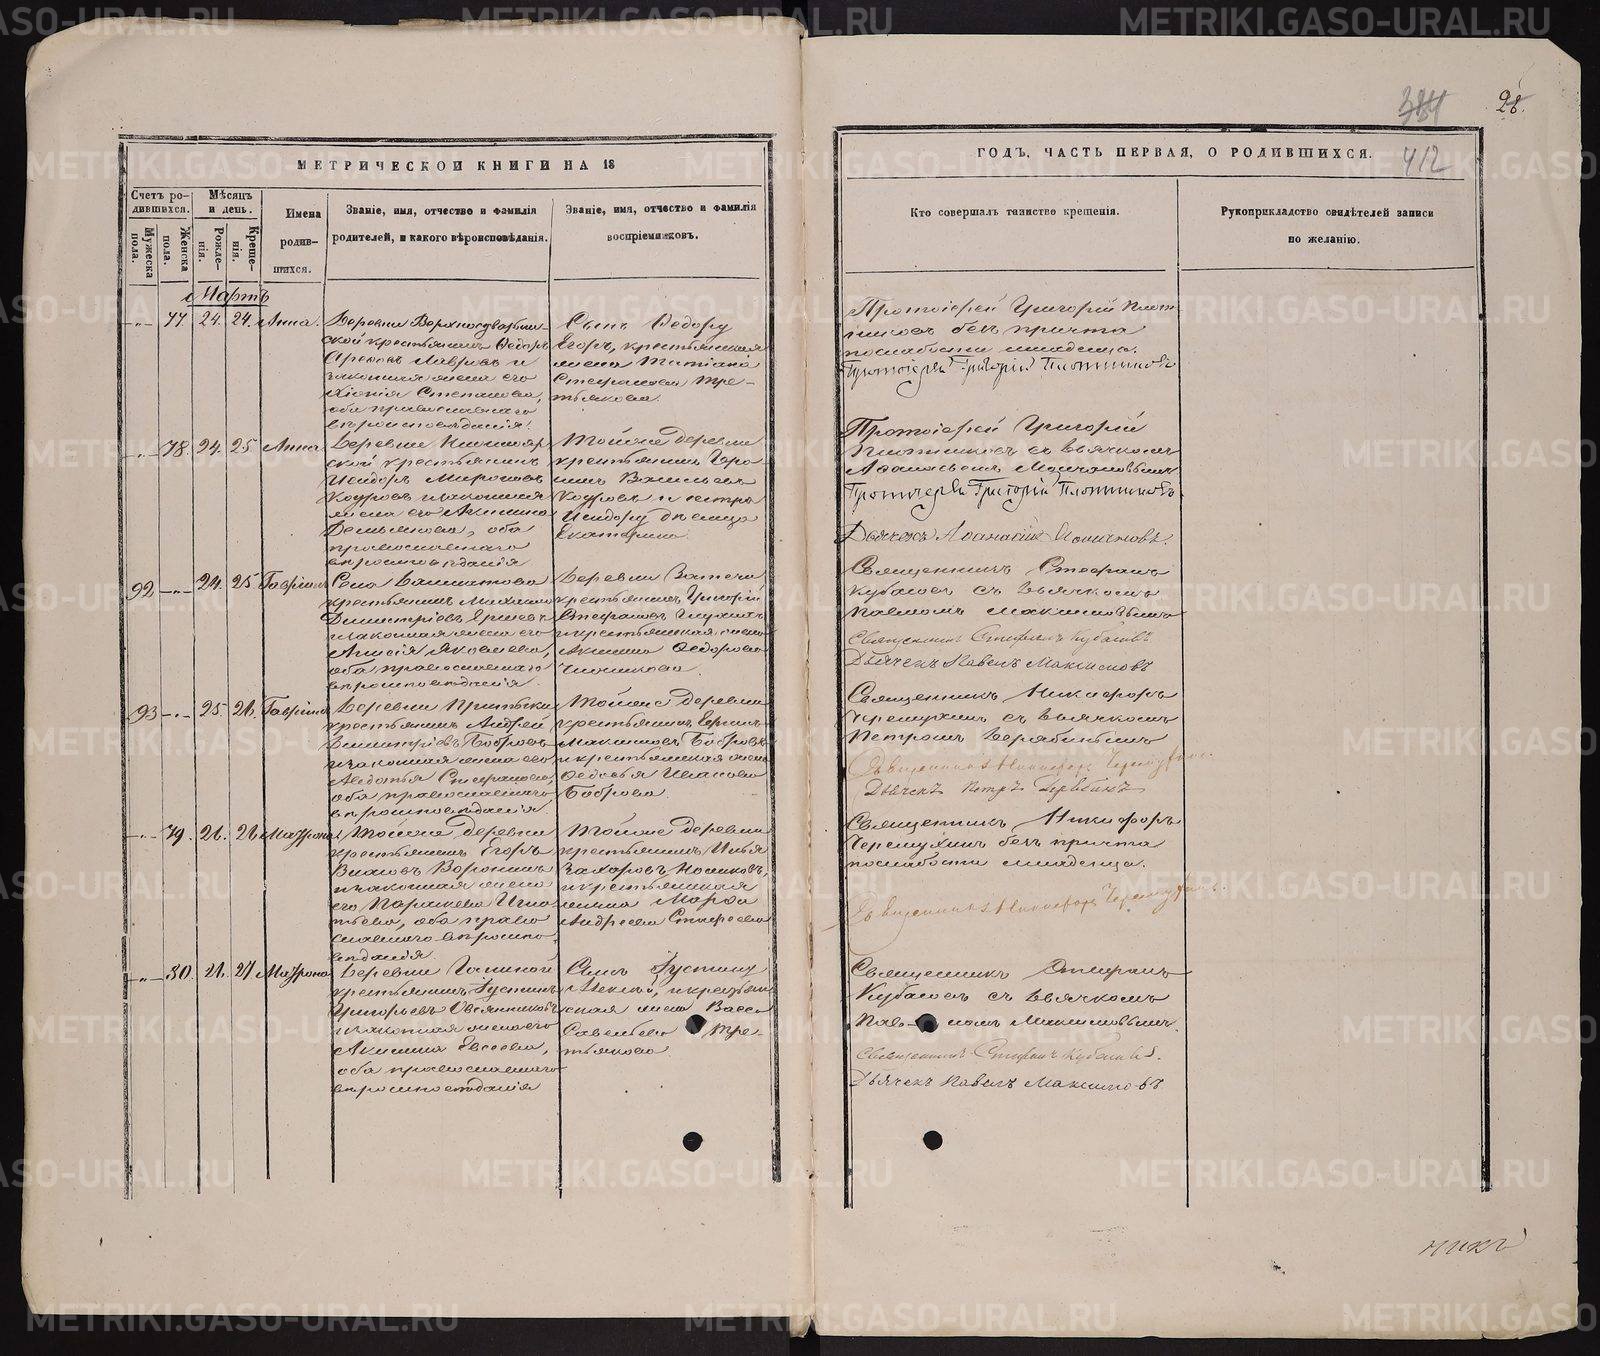 METRIKI.GASO-URAL.RU
384
28.
412
МЕТРИЧЕСКОЙ КНИГИ НА 18
Счетъ ро-
дившихся.
Мужеска
пола.
Женска
пола.
Мѣсяцъ
и день.
Рожде-
нія.
Креще-
нія.
Имена
родив-
шихся.
Званіе, имя, отчество и фамилія
родителей, и какого вѣроисповѣданія.
Званіе, имя, отчество и фамилія
воспріемниковъ.
Мартъ
77 24. 24. Анна.
крестьянинъ Ѳедоръ
Лавровъ и
законная жена его
Хіонія Степанова,
оба православнаго
вѣроисповѣданія.
Сынъ Ѳедору
Егоръ, крестьянская
жена Татіана
Стефанова Тре-
тьякова.
78. 24. 25. Анна
ской крестьянинъ
Исидоръ Мироновъ
законная
жена его Акилина
Демьянова, оба
православнаго
вѣроисповѣданія
Тойже деревни
крестьянинъ
Васильевъ
и сестра
Исидору дѣвица
Екатерина.
92 24. 25 Гавріилъ
Села
крестьянинъ Михаилъ
Димитріевъ
и законная жена его
Яковлева,
оба православнаго
вѣроисповѣданія.
Деревни
крестьянинъ Григорій
Стефановъ
и крестьянская жена
Акилина Ѳедорова
93 25. 26. Гавріилъ
Деревни
крестьянинъ Андрей
Димитріевъ Бобровъ
и законная жена его
Авдотья Стефанова,
оба православнаго
вѣроисповѣданія.
Тойже деревни
крестьянинъ
Максимовъ Бобровъ
и крестьянская жена
Ѳедосья Иванова
Боброва.
79. 26. 26 Матрона
Тойже деревни
крестьянинъ Егоръ
Воронинъ
и законная жена
его Параскева Игна-
тьева, оба право
славнаго вѣроиспо-
вѣданія.
Тойже деревни
крестьянинъ Илья
Захаровъ Новиковъ,
и крестьянская
жена Марѳа
Андреева
80. 26. 27 Матрона
Деревни
крестьянинъ Іустинъ
Григорьевъ Овсянниковъ
и законная жена его
Акилина Евсеева,
оба православнаго
вѣроисповѣданія
Сынъ Іустину
Алексей, и крестьян
ская жена Васса
Савельева Тре-
тьякова.
ГОДЪ, ЧАСТЬ ПЕРВАЯ, О РОДИВШИХСЯ.
Кто совершалъ таинство крещенія.
Рукоприкладство свидѣтелей записи
по желанію.
Протоіерей Григорій Плот
никовъ безъ причта
по слабости младенца.
Протоіерей Григорій Плотниковъ
Протоіерей Григорій
Плотниковъ съ дьячкомъ
Аѳанасьемъ
Протоіерей Григорій Плотниковъ.
Дьячекъ Аѳанасій
Священникъ Стефанъ
Кубасовъ съ дьячкомъ
Павломъ Максимовымъ
Священникъ Стефанъ Кубасовъ.
Дьячекъ Павелъ Максимовъ
Священникъ Никифоръ
Черемухинъ съ дьячкомъ
Петромъ Дерябинымъ
Священникъ Никифоръ Черемухинъ.
Дьячекъ Петръ Дерябинъ
Священникъ Никифоръ
Черемухинъ безъ причта
по слабости младенца.
Священникъ Никифоръ Черемухинъ.
Священникъ Стефанъ
Кубасовъ съ дьячкомъ
Павломъ Максимовымъ.
Священникъ Стефанъ Кубасовъ.
Дьячекъ Павелъ Максимовъ
никъ